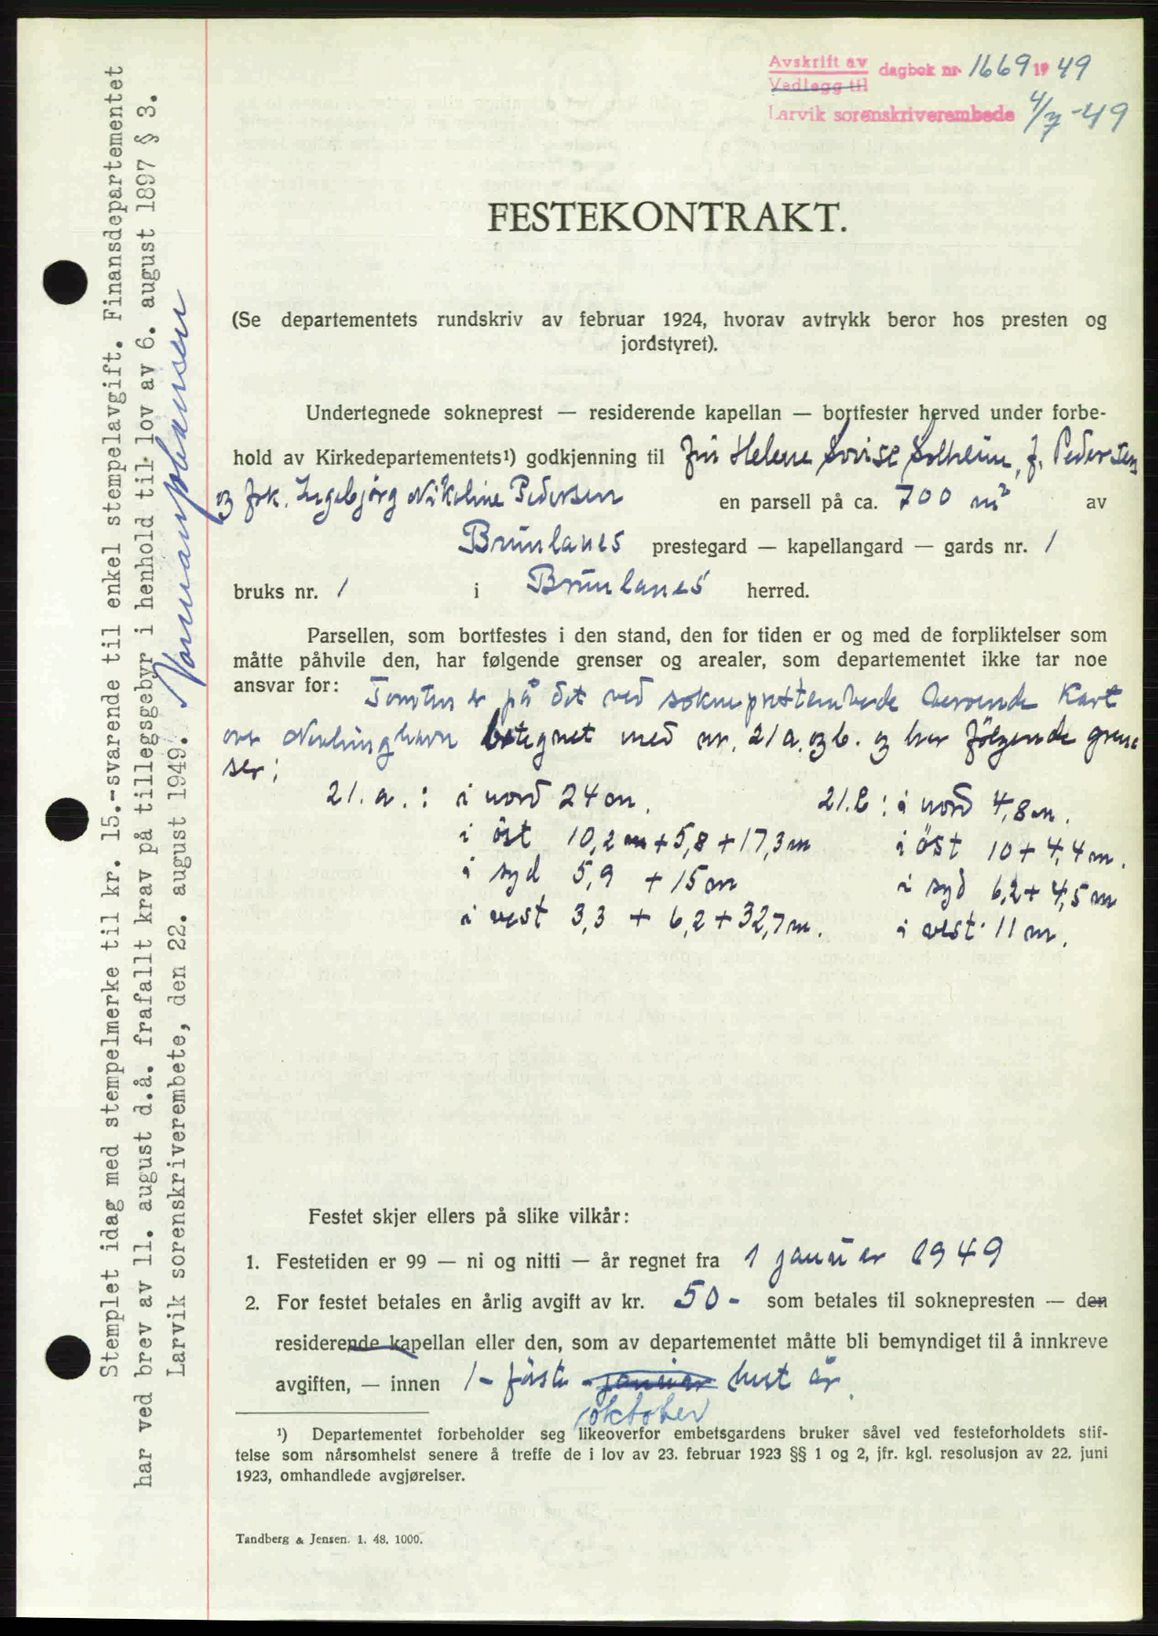 Avskrift av
Vedlegg til
dagbok nr. 1669 1949
Larvik sorenskriverembede 4/7-49
FESTEKONTRAKT.
(Se departementets rundskriv av februar 1924, hvorav avtrykk beror hos presten og
jordstyret).
Undertegnede sokneprest — residerende kapellan — bortfester herved under forbe-
hold av Kirkedepartementets¹) godkjenning til fru Helene Lovise Solheim, f. Pedersen
og frk. Ingebjørg Nikoline Pedersen en parsell på ca. 700 m² av
Brunlanes prestegard — kapellangard — gards nr. 1
bruks nr. 1 i Brunlanes herred.
Parsellen, som bortfestes i den stand, den for tiden er og med de forpliktelser som
måtte påhvile den, har følgende grenser og arealer, som departementet ikke tar noe
ansvar for: Tomten er på det ved sokneprestembede beroende Kart
over Nevlunghavn betegnet med nr. 21a. og b. og har følgende gren-
ser:
21. a. : i nord 24 m. 21.b : i nord 4,8 m.
i öst 10,2 m + 5,8 + 17,3 m i öst 10 + 4,4 m.
i syd 5,9 + 15 m i syd 6,2 + 4,5 m
i vest 3,3 + 6,2 + 32,7 m. i vest 11 m.
Festet skjer ellers på slike vilkår:
1. Festetiden er 99 — ni og nitti — år regnet fra 1 januar 1949
2. For festet betales en årlig avgift av kr. 50 - som betales til soknepresten — den
residerende kapellan eller den, som av departementet måtte bli bemyndiget til å innkreve
avgiften, — innen 1 - förste - januar hvert år.
oktober
¹) Departementet forbeholder seg likeoverfor embetsgardens bruker såvel ved festeforholdets stif-
telse som nårsomhelst senere å treffe de i lov av 23. februar 1923 §§ 1 og 2, jfr. kgl. resolusjon av 22. juni
1923, omhandlede avgjørelser.
Tandberg & Jensen. 1. 48. 1000.
Stemplet idag med stempelmerke til kr. 15.-svarende til enkel stempelavgift. Finansdepartementet
har ved brev av 11. august d.å. frafallt krav på tilleggsgebyr i henhold til lov av 6. august 1897 § 3.
Larvik sorenskriverembete, den 22. august 1949. Norman Johansen